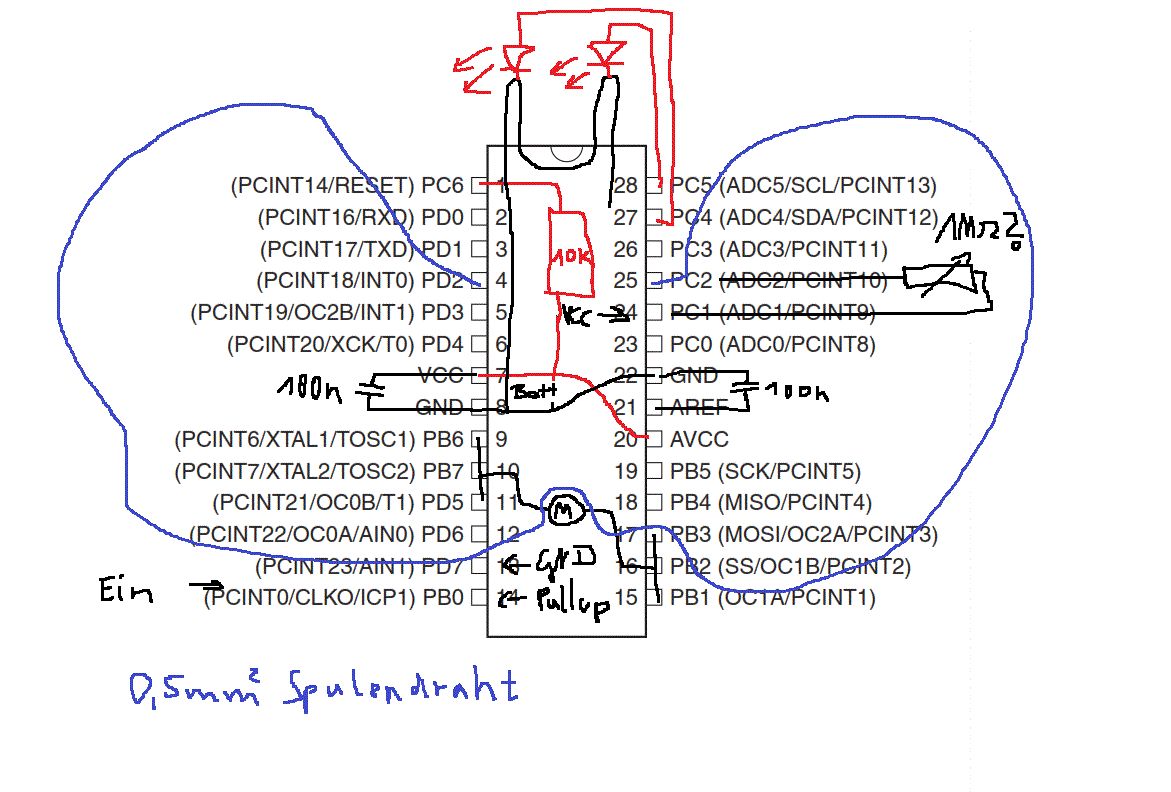 (PCINT14/RESET) PC6 1 28 PC5 (ADC5/SCL/PCINT13)
(PCINT16/RXD) PD0 2 27 PC4 (ADC4/SDA/PCINT12)
1MΩ?
(PCINT17/TXD) PD1 3 10K 26 PC3 (ADC3/PCINT11)
(PCINT18/INT0) PD2 4 25 PC2 (ADC2/PCINT10)
(PCINT19/OC2B/INT1) PD3 5 24 PC1 (ADC1/PCINT9)
(PCINT20/XCK/T0) PD4 6 23 PC0 (ADC0/PCINT8)
VCC 7 22 GND
100n Batt 100n
GND 8 21 AREF
(PCINT6/XTAL1/TOSC1) PB6 9 20 AVCC
(PCINT7/XTAL2/TOSC2) PB7 10 19 PB5 (SCK/PCINT5)
(PCINT21/OC0B/T1) PD5 11 M 18 PB4 (MISO/PCINT4)
(PCINT22/OC0A/AIN0) PD6 12 17 PB3 (MOSI/OC2A/PCINT3)
(PCINT23/AIN1) PD7 13 GND 16 PB2 (SS/OC1B/PCINT2)
Ein (PCINT0/CLKO/ICP1) PB0 14 Pullup 15 PB1 (OC1A/PCINT1)
0,5mm² Spulendraht